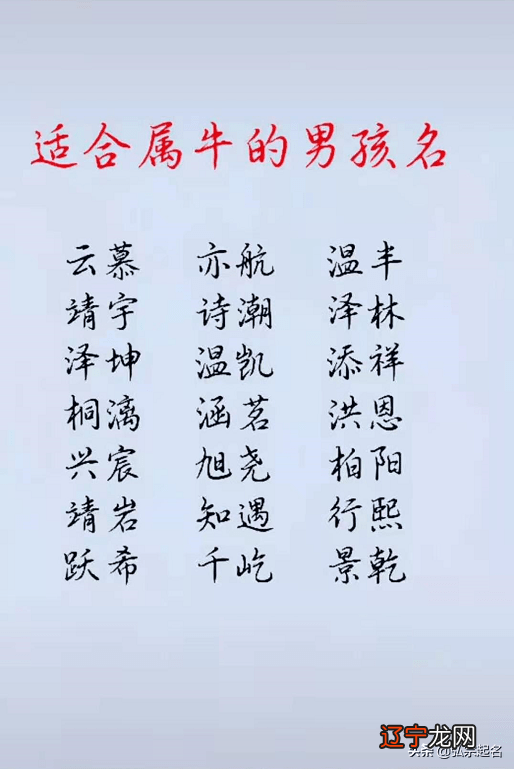 适合属牛的男孩名
云慕 亦航 温半
靖宇 诗潮 泽林
泽坤 温凯 添祥
桐漓 涵茗 洪恩
兴宸 旭尧 柏阳
靖岩 知遇 行熙
跃希 千屹 景乾
辽宁龙网
头条 @弘宗起名